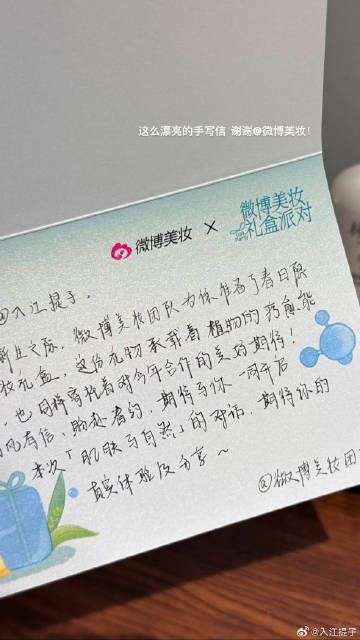 这么漂亮的手写信 谢谢@微博美妆!
微博美妆 × 微博美妆
礼盒派对
@入江提子,
新立之际,微博美妆团队为你准备了春日限
妆礼盒,这份礼物承载着植物的疗愈能
,也同样寄托着对今年合作的美好期待!
风有信,盼赴春约,期待与你一同开启
本次「肌肤与自然」的对话,期待你的
真实体验及分享~
@微博美妆团
@入江提子